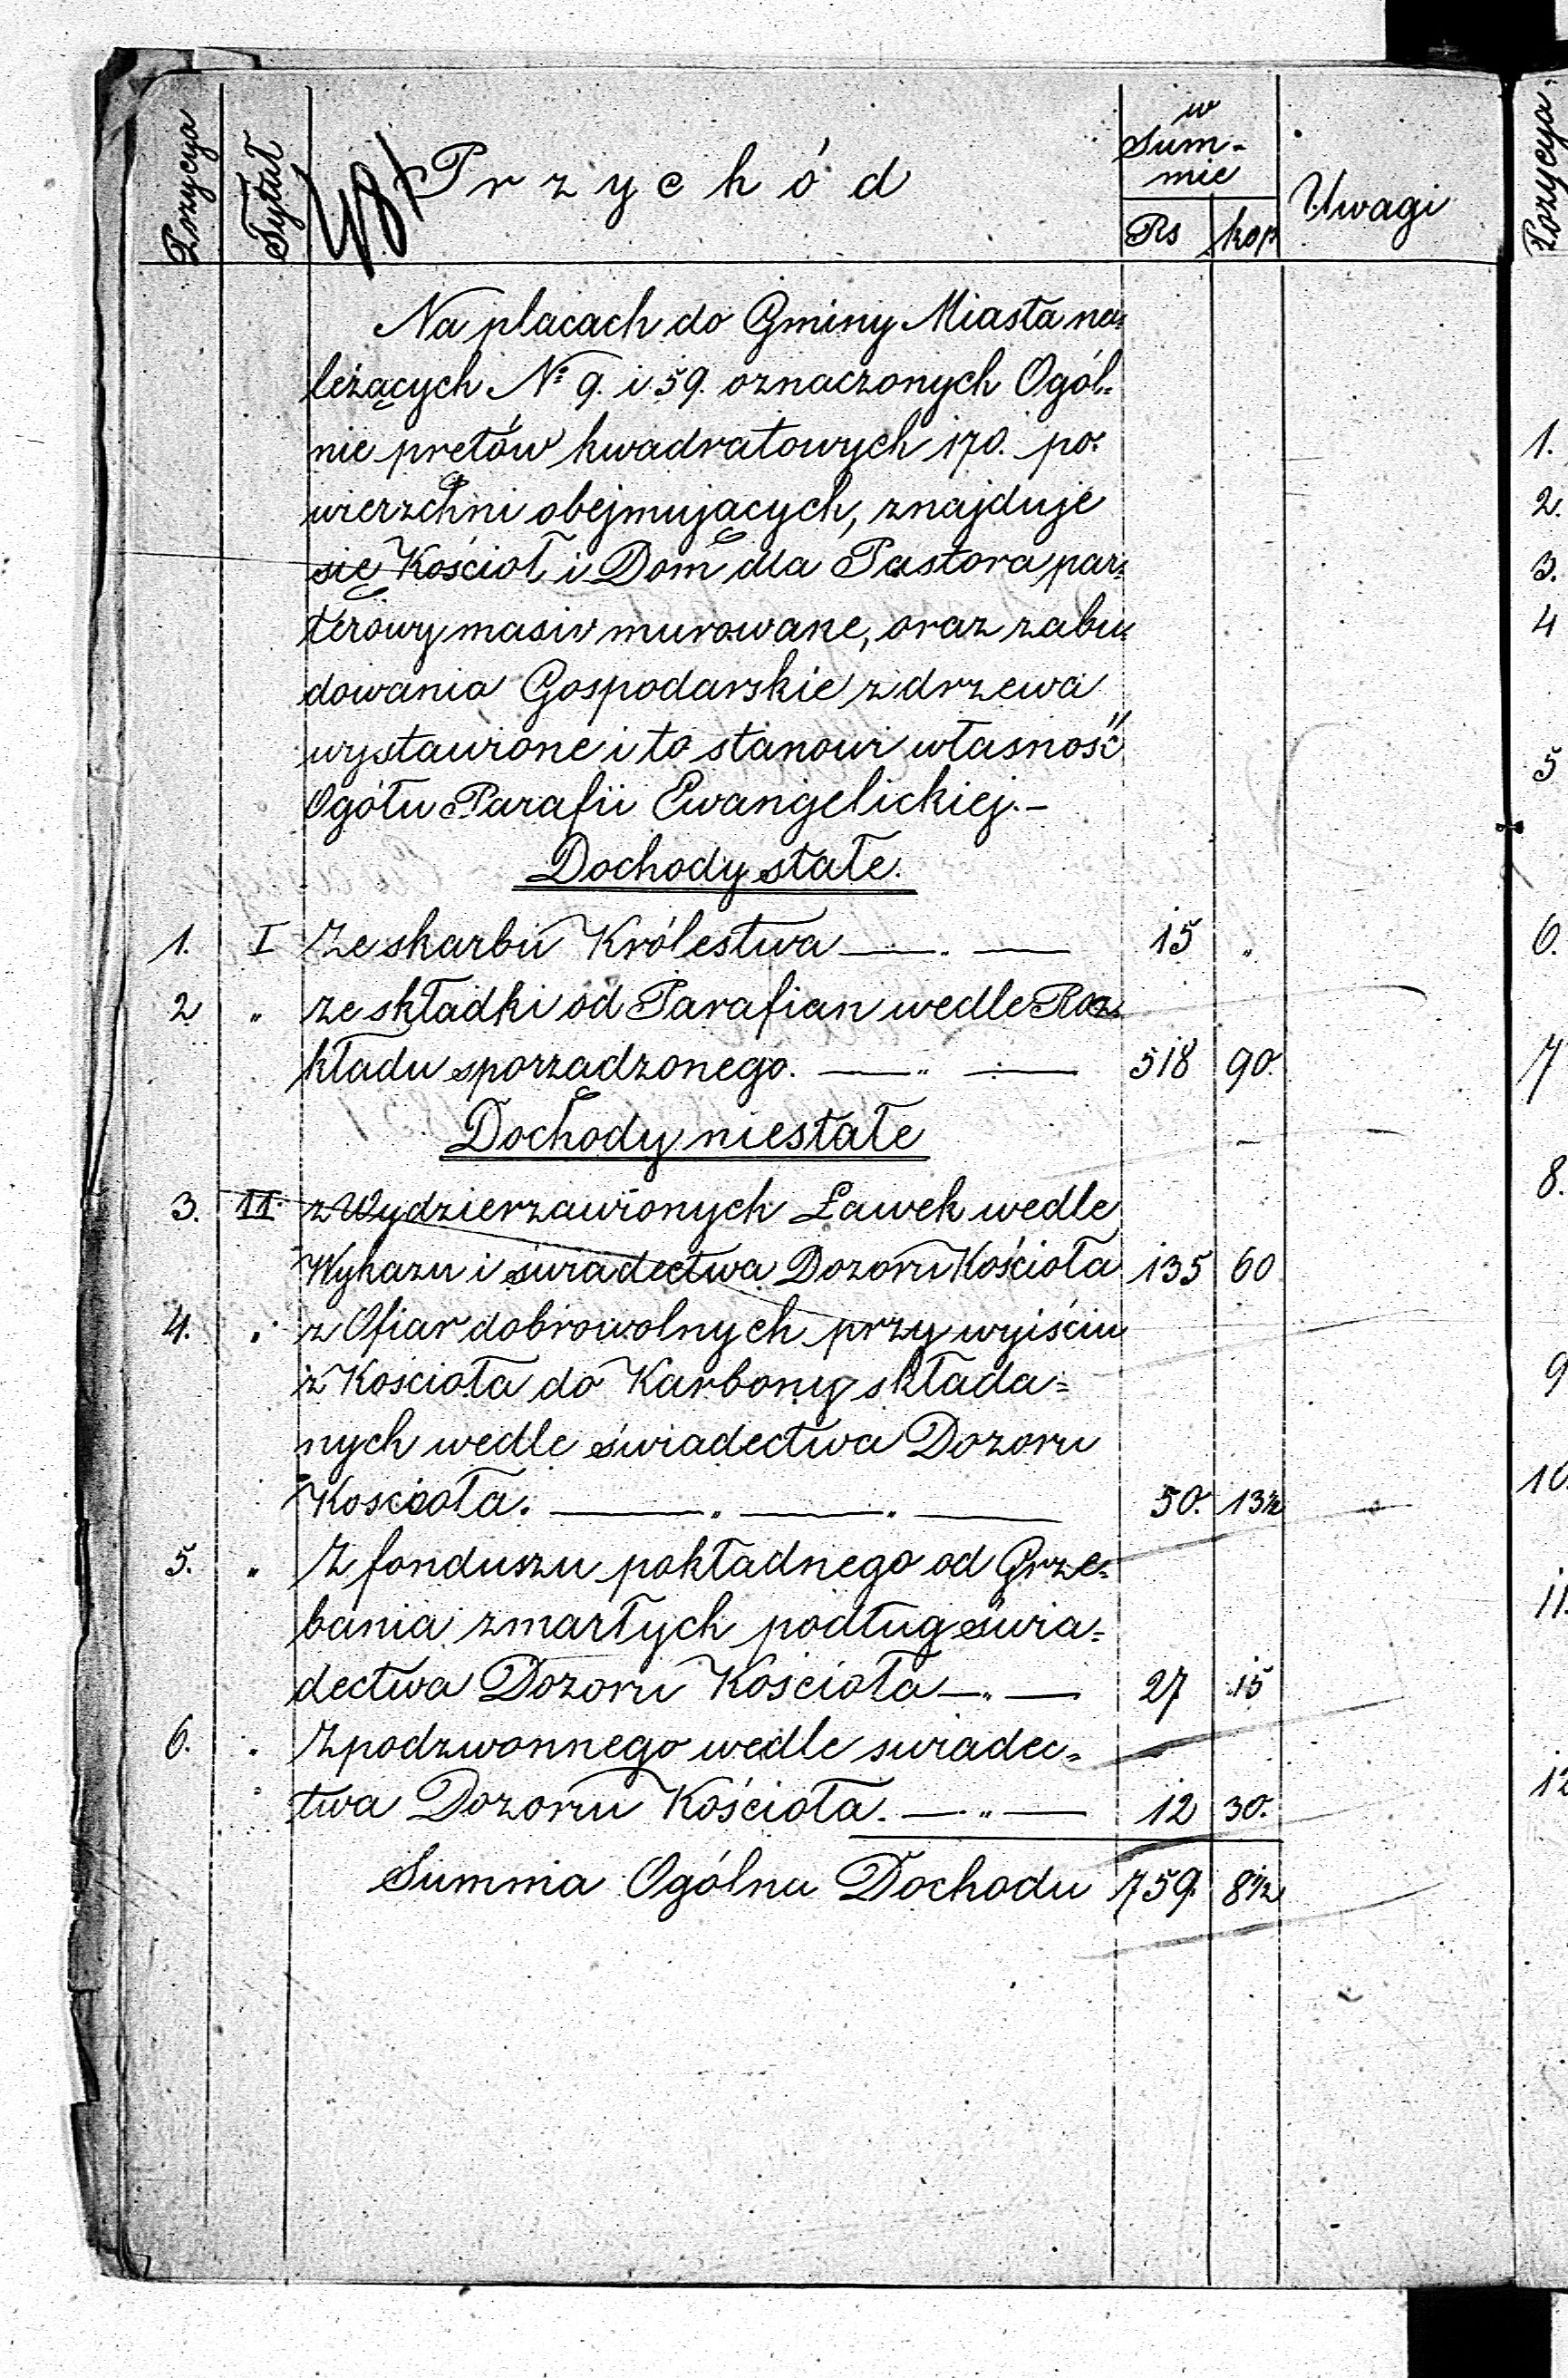 Pozycya Tytuł 48 Przychód w Sum- mie Rs kop Uwagi Pozycya
Na placach do Gminy Miasta na=
leżących № 9. i 59. oznaczonych Ogól=
nie prętów kwadratowych 170. po=
wierzchni obejmujących, znajduje
się Kościoł i Dom dla Pastora par=
terowy masiv murowane, oraz zabu=
dowania Gospodarskie z drzewa
wystawione i to stanowi własność
Ogółu Parafii Ewangelickiej.—
Dochody stałe.
1. I Ze skarbu Królestwa — . — 15 "
2 " ze składki od Parafian wedle Roz=
kładu sporządzonego. — " — 518 90.
Dochody niestałe
3. II. z Wydzierzawionych Ławek wedle
Wykazu i świadectwa Dozoru Kościoła 135 60
4. " z Ofiar dobrowolnych przy wyiściu
z Kościoła do Karbony składa=
nych wedle świadectwa Dozoru
Kościoła. — " — " — 50. 13½
5. " Z funduszu pokładnego od Grze=
bania zmarłych podług świa=
dectwa Dozoru Kościoła — " — 27 15
6. " Z podzwonnego wedle swiadec=
twa Dozoru Kościoła. — " — 12 30.
Summa Ogólna Dochodu 759. 8½
1.
2.
3.
4
5
6.
7
8.
9
10.
11.
12